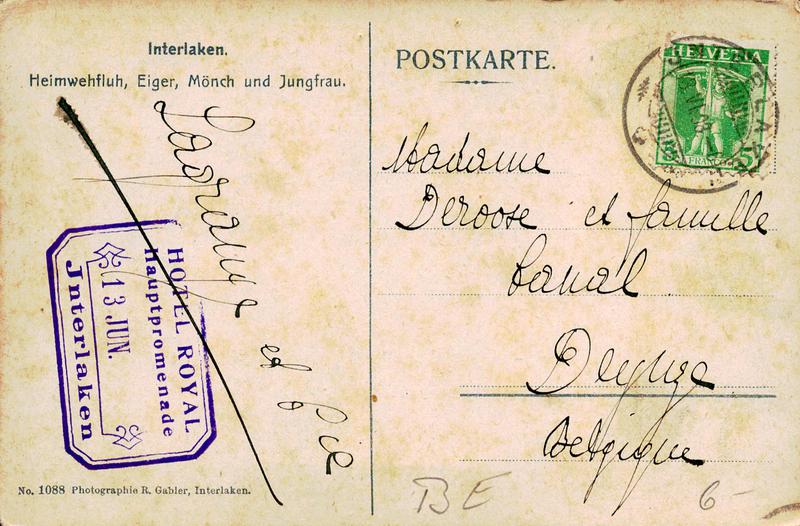 Interlaken.
Heimwehfluh, Eiger, Mönch und Jungfrau.
POSTKARTE.
HELVETIA
5
FRANCO
5
Madame
Deroose et famille
Canal
Deynze
Belgique
Lagrange et Cie
HOTEL ROYAL
Hauptpromenade
13 JUN.
Jnterlaken
No. 1088 Photographie R. Gabler, Interlaken.
BE
6-